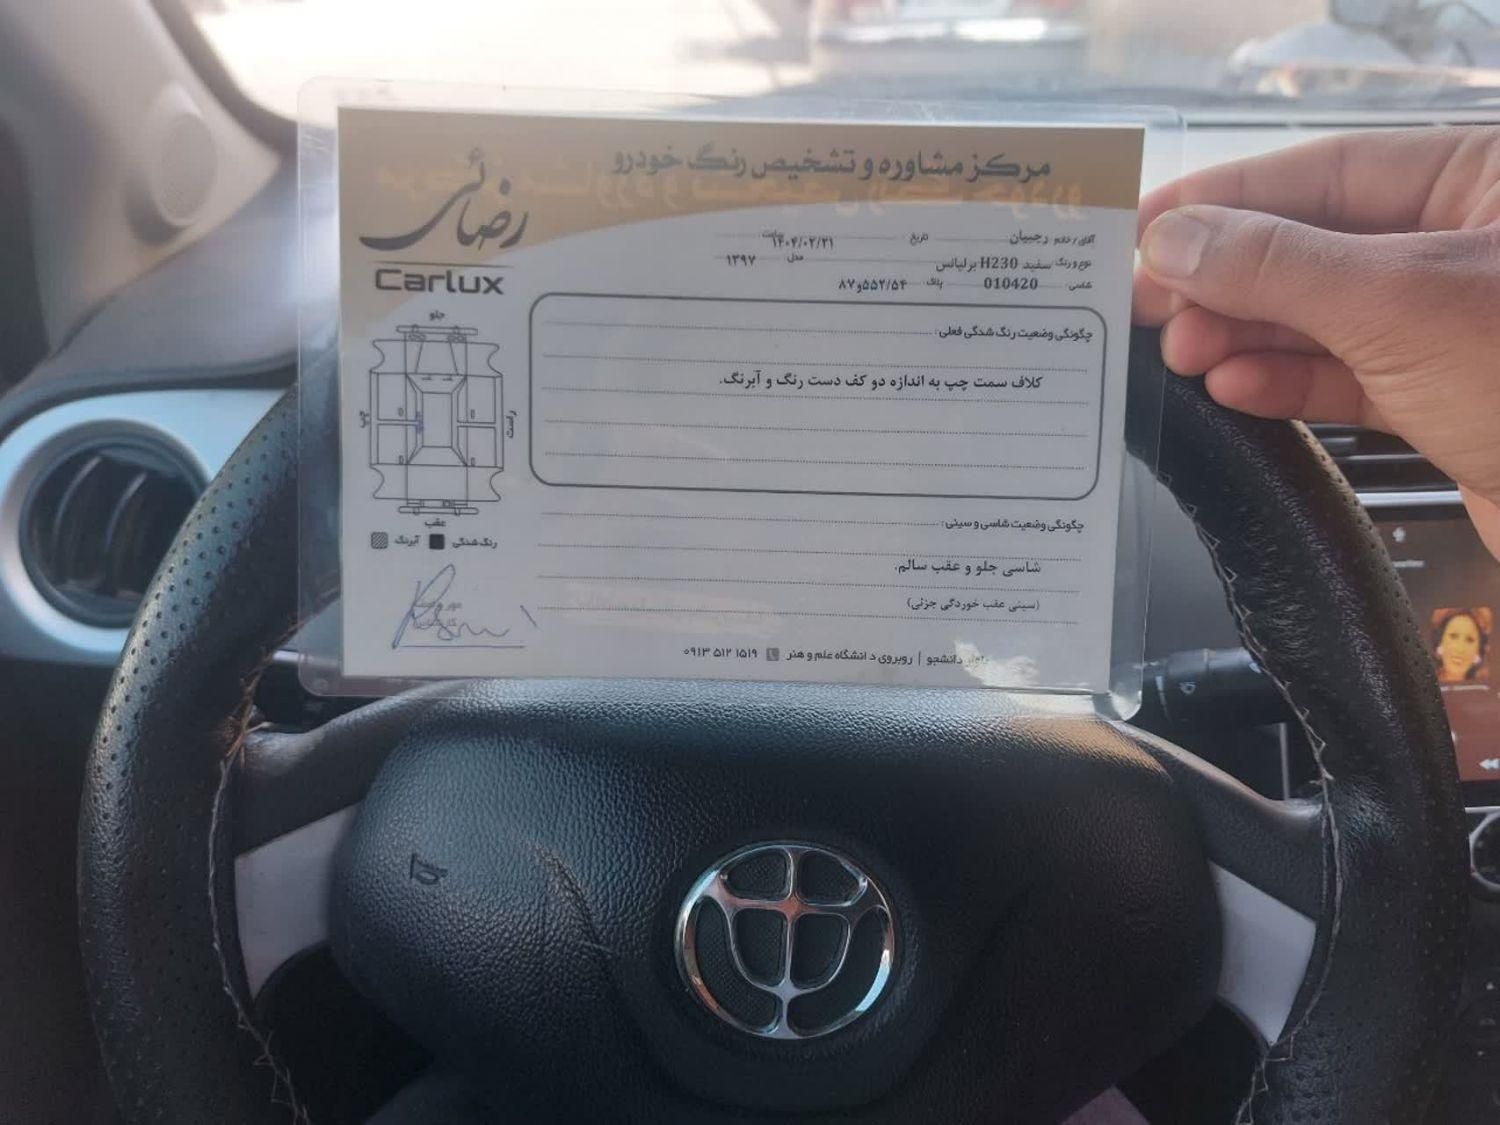 مرکز مشاوره و تشخیص رنگ خودرو
رضائی
Carlux
آقای/خانم رجبیان تاریخ ۱۴۰۴/۰۲/۲۱ ساعت
نوع و رنگ سفید H230 برلیانس مدل ۱۳۹۷
شاسی 010420 پلاک ۵۵۲/۵۴و۸۷
چگونگی وضعیت رنگ شدگی فعلی:
کلاف سمت چپ به اندازه دو کف دست رنگ و آبرنگ.
جلو
چپ
راست
عقب
رنگ شدگی آبرنگ
چگونگی وضعیت شاسی و سینی:
شاسی جلو و عقب سالم.
(سینی عقب خوردگی جزئی)
مهر و امضاء
دانشجو | روبروی دانشگاه علم و هنر ۰۹۱۳ ۵۱۲ ۱۵۱۹